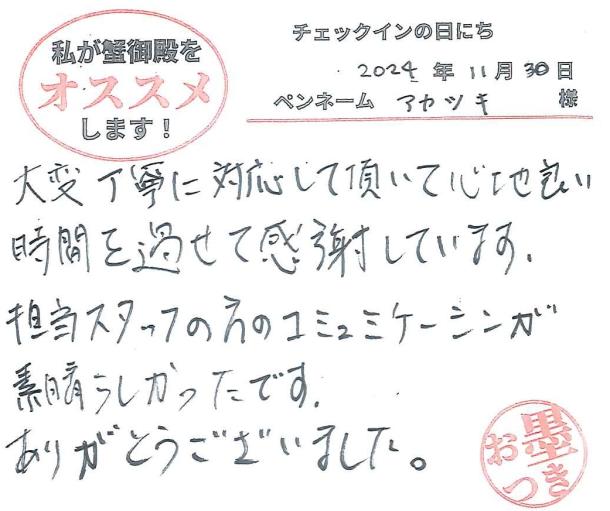 私が蟹御殿を
オススメ
します！
チェックインの日にち
2024年11月30日
ペンネーム アカツキ 様
大変丁寧に対応して頂いて心地良い
時間を過せて感謝しています.
担当スタッフの方のコミュミケーシンが
素晴らしかったです.
ありがとうございました。
お墨
つき